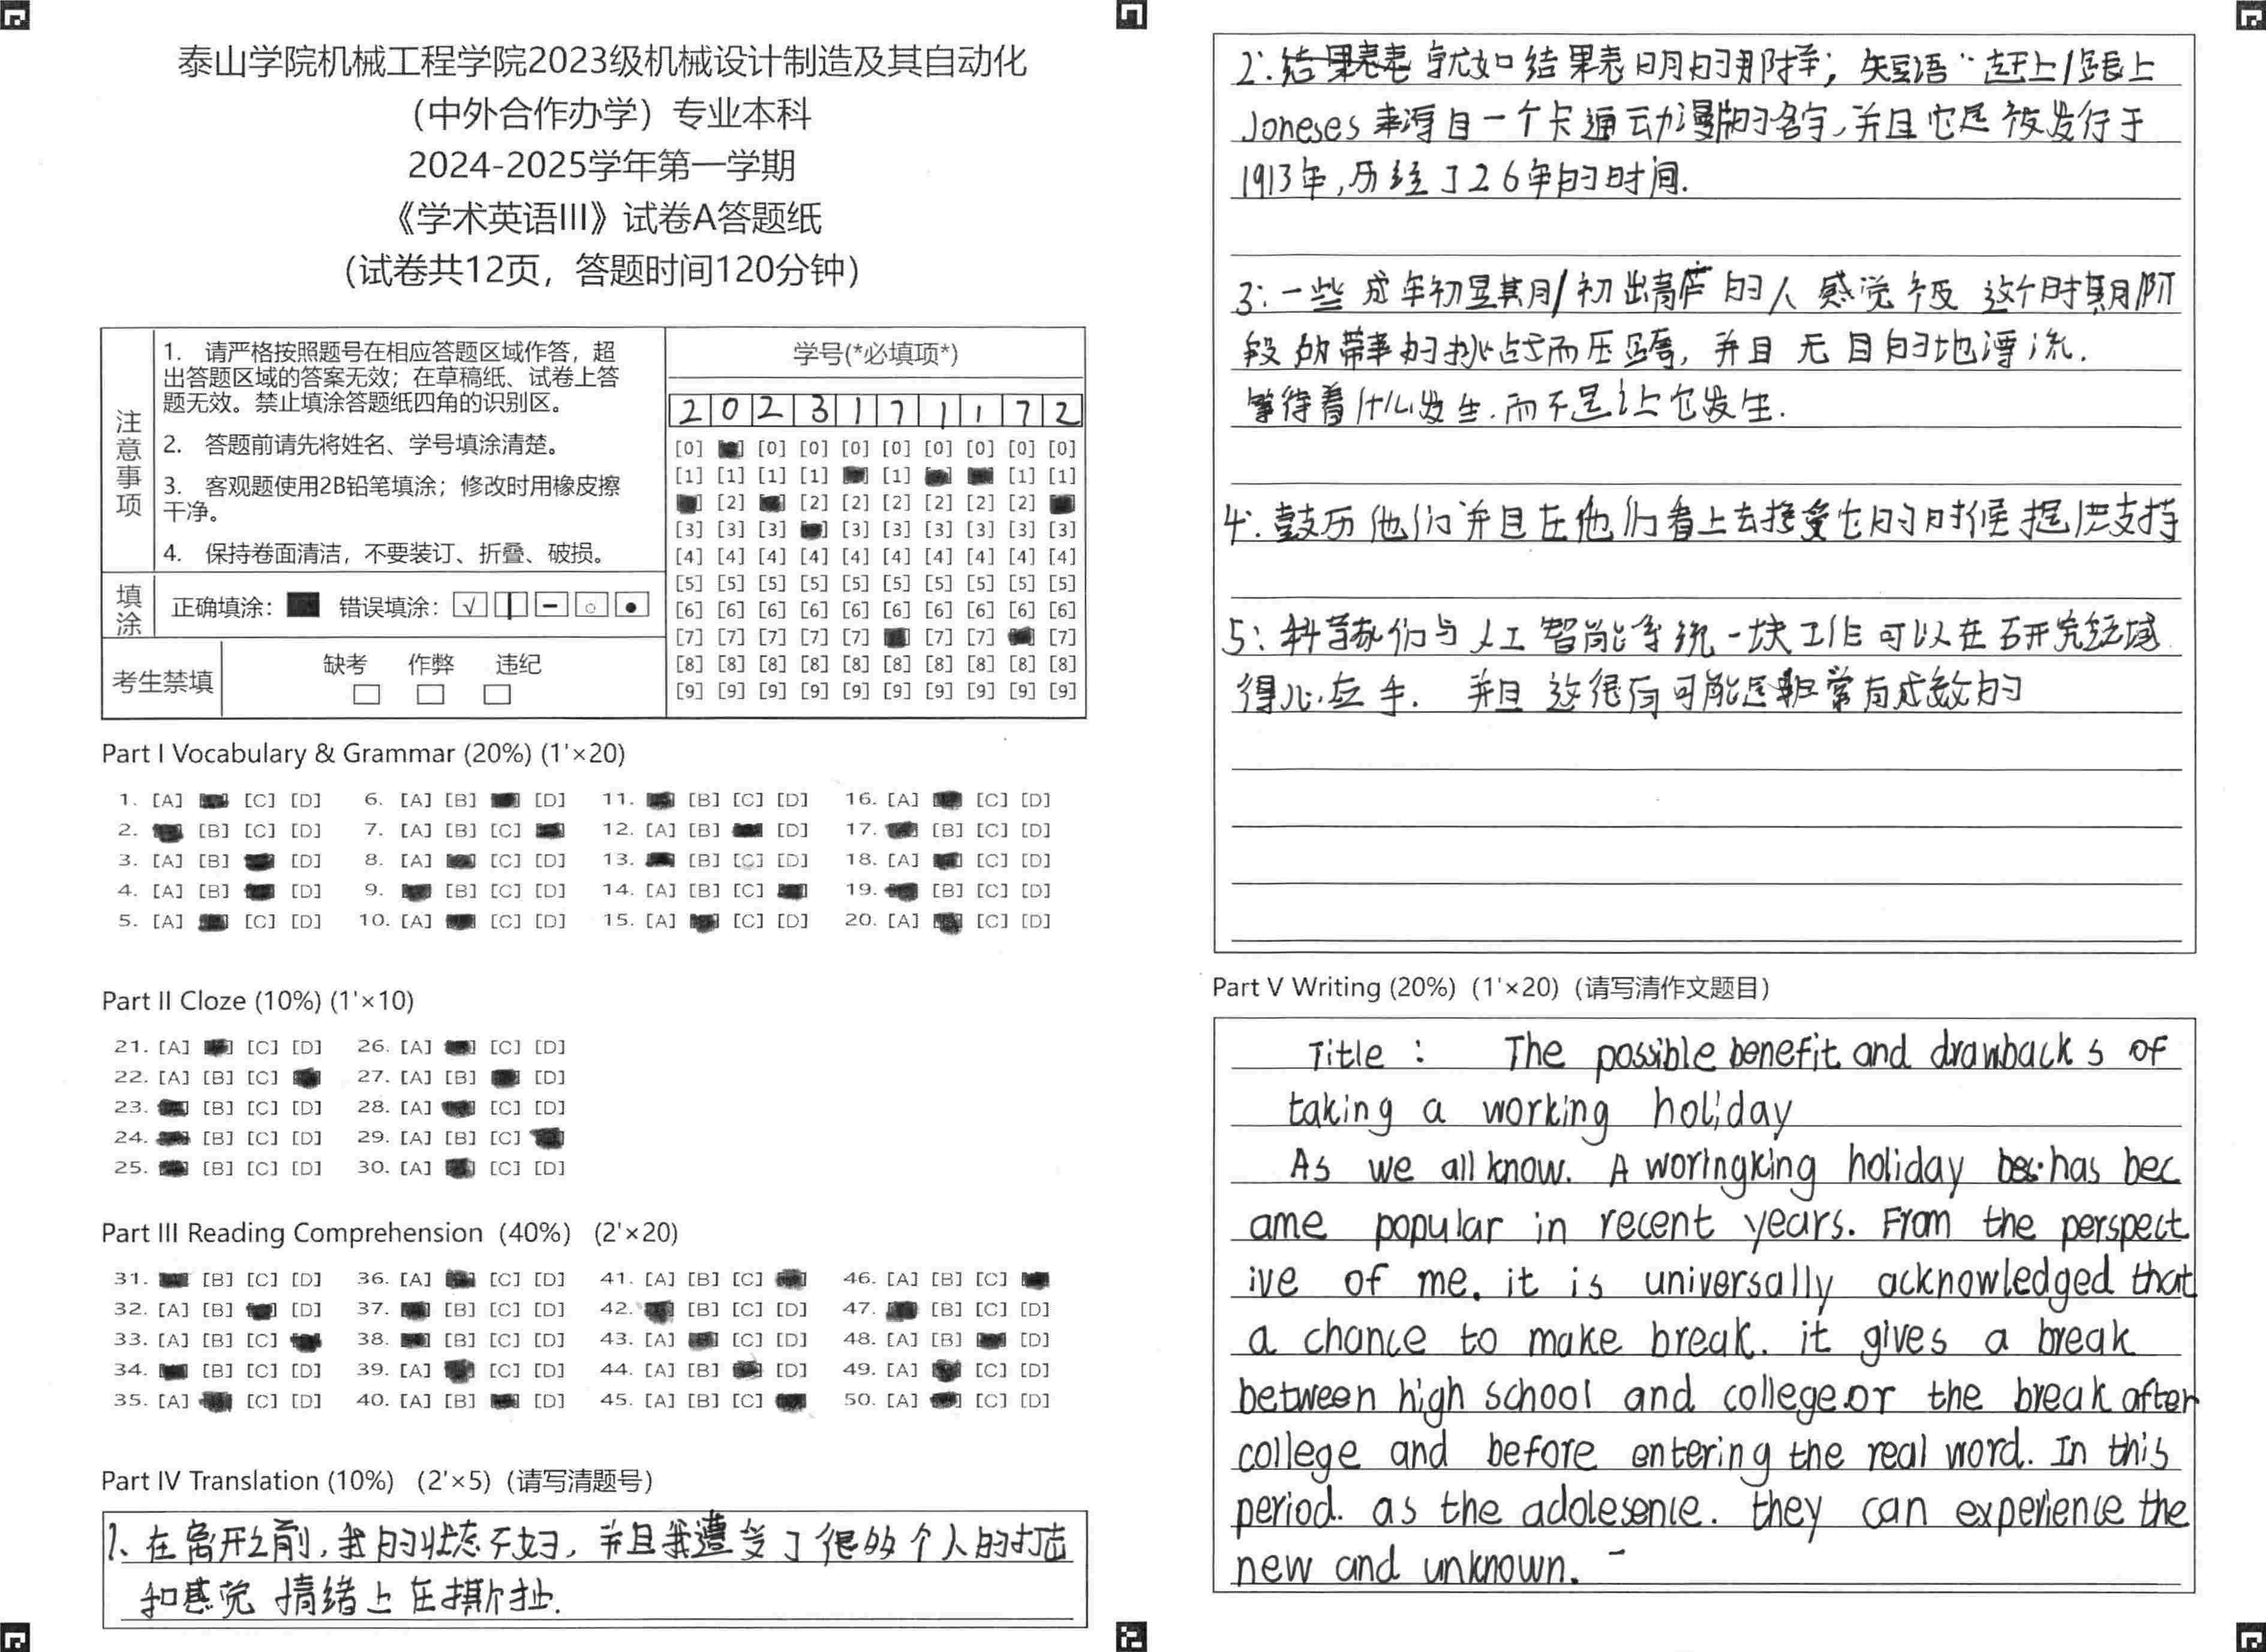 泰山学院机械工程学院2023级机械设计制造及其自动化
（中外合作办学）专业本科
2024-2025学年第一学期
《学术英语III》试卷A答题纸
(试卷共12页，答题时间120分钟)
注意事项
1. 请严格按照题号在相应答题区域作答，超
出答题区域的答案无效；在草稿纸、试卷上答
题无效。禁止填涂答题纸四角的识别区。
2. 答题前请先将姓名、学号填涂清楚。
3. 客观题使用2B铅笔填涂；修改时用橡皮擦
干净。
4. 保持卷面清洁，不要装订、折叠、破损。
填涂
正确填涂： 错误填涂：
考生禁填
缺考 作弊 违纪
学号(*必填项*)
2 0 2 3 1 7 1 1 7 2
[0] [0] [0] [0] [0] [0] [0] [0] [0]
[1] [1] [1] [1] [1] [1] [1]
[2] [2] [2] [2] [2] [2] [2]
[3] [3] [3] [3] [3] [3] [3] [3] [3]
[4] [4] [4] [4] [4] [4] [4] [4] [4] [4]
[5] [5] [5] [5] [5] [5] [5] [5] [5] [5]
[6] [6] [6] [6] [6] [6] [6] [6] [6] [6]
[7] [7] [7] [7] [7] [7] [7] [7]
[8] [8] [8] [8] [8] [8] [8] [8] [8] [8]
[9] [9] [9] [9] [9] [9] [9] [9] [9] [9]
Part I Vocabulary & Grammar (20%) (1'×20)
1. [A] [C] [D] 6. [A] [B] [D] 11. [B] [C] [D] 16. [A] [C] [D]
2. [B] [C] [D] 7. [A] [B] [C] 12. [A] [B] [D] 17. [B] [C] [D]
3. [A] [B] [D] 8. [A] [C] [D] 13. [B] [C] [D] 18. [A] [C] [D]
4. [A] [B] [D] 9. [B] [C] [D] 14. [A] [B] [C] 19. [B] [C] [D]
5. [A] [C] [D] 10. [A] [C] [D] 15. [A] [C] [D] 20. [A] [C] [D]
Part II Cloze (10%) (1'×10)
21. [A] [C] [D] 26. [A] [C] [D]
22. [A] [B] [C] 27. [A] [B] [D]
23. [B] [C] [D] 28. [A] [C] [D]
24. [B] [C] [D] 29. [A] [B] [C]
25. [B] [C] [D] 30. [A] [C] [D]
Part III Reading Comprehension (40%) (2'×20)
31. [B] [C] [D] 36. [A] [C] [D] 41. [A] [B] [C] 46. [A] [B] [C]
32. [A] [B] [D] 37. [B] [C] [D] 42. [B] [C] [D] 47. [B] [C] [D]
33. [A] [B] [C] 38. [B] [C] [D] 43. [A] [C] [D] 48. [A] [B] [D]
34. [B] [C] [D] 39. [A] [C] [D] 44. [A] [B] [D] 49. [A] [C] [D]
35. [A] [C] [D] 40. [A] [B] [D] 45. [A] [B] [C] 50. [A] [C] [D]
Part IV Translation (10%) (2'×5) (请写清题号)
1、在离开之前,我的状态不好,并且我遭受了很多个人的打击
和感觉情绪上在撕扯.
2:结果表 就如结果表明的那样；短语"赶上/跟上
Joneses 来源自一个卡通动漫的名字,并且它是被发行于
1913年,历经了26年的时间.
3:一些成年初显其月/初出青庐的人感觉被这个时期阶
段所带来的挑战而压垮,并且无目的地漂流.
等待着什么发生.而不是让它发生.
4:鼓历他们并且在他们看上去接受它的时候提供支持
5:科学家们与人工智能系统一块工作可以在研究领域
得心应手. 并且这很有可能是非常有成效的
Part V Writing (20%) (1'×20) (请写清作文题目)
Title : The possible benefit and drawback s of
taking a working holiday
As we all know. A woringking holiday has bec
ame popular in recent years. From the perspect
ive of me. it is universally acknowledged that
a chance to make break. it gives a break
between high school and college.or the break after
college and before entering the real word. In this
period. as the adolesence. they can experience the
new and unknown.